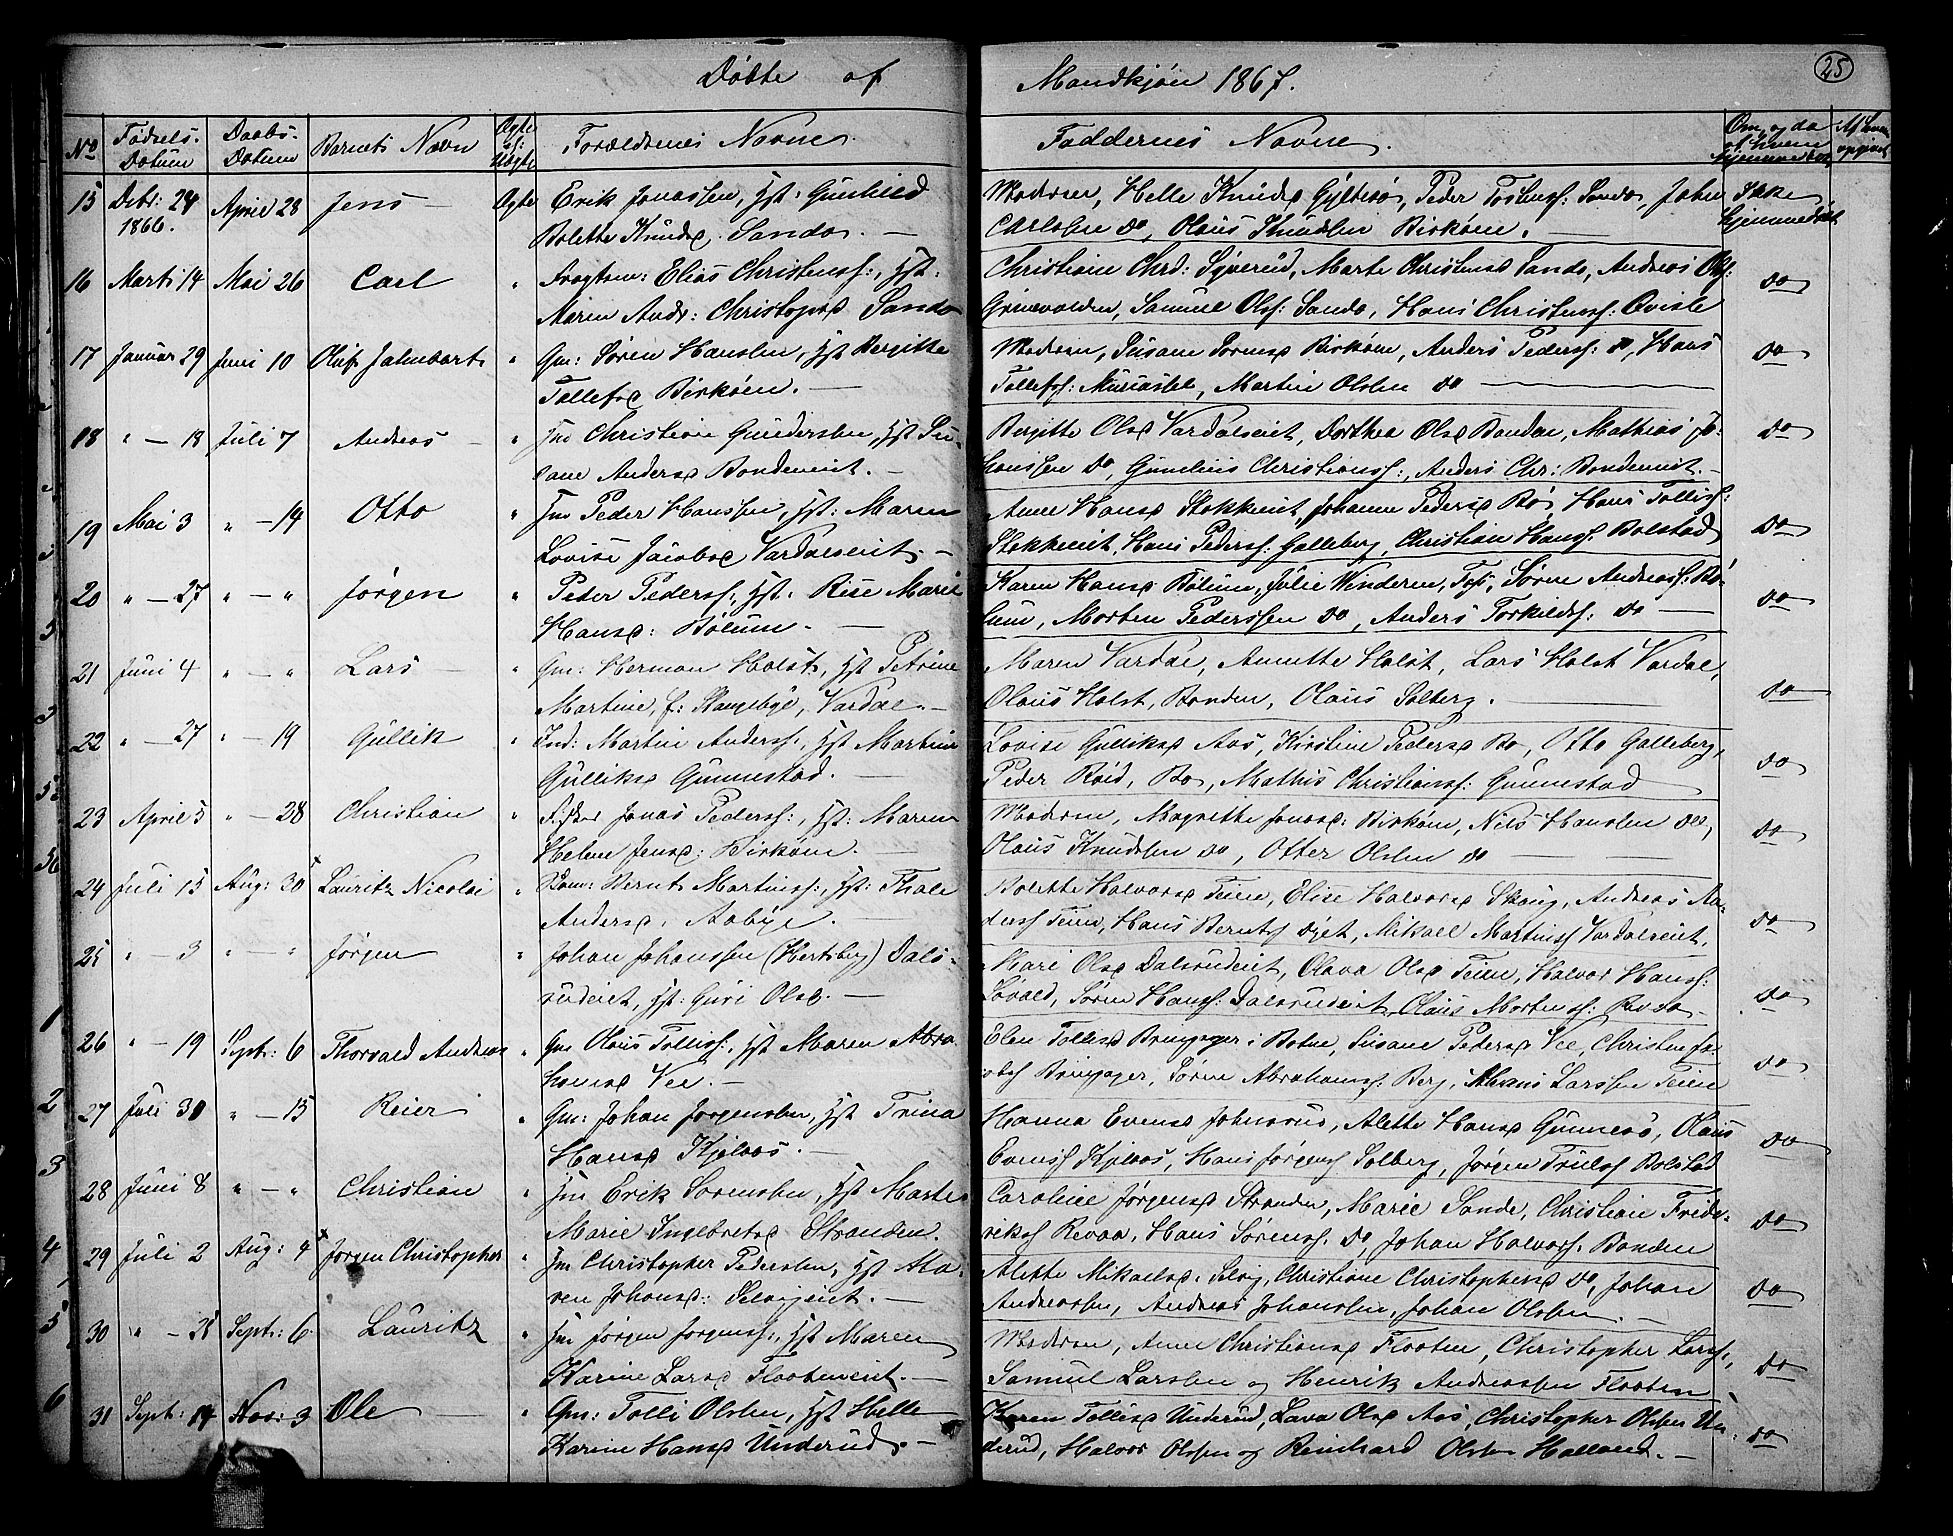 Døbte af Mandkjøn 1867. 25
No Fødsels- Datum Daabs- Datum Barnets Navn Ægte el: Uægte Forældrenes Navne Faddernes Navne. Om og da af hvem
15 Debr: 24 1866. April 28 Jens Ægte Erik Jonassen, Hst: Gunhild
Bolette Knuds. Sando. —
Moderen, Helle Knuds Peder Sando, Johan Ikke
Carlsen do, Olaus Knudsen Birkøen. hjemmedøbt
16 Marts 14 Mai 26 Carl " Elias Christenss:, Hst:
Maren Andr: Christophs Sando
Christian Chrd: Marte Christens Sando, Andreas
Samuel Ols: Sando, Hans Christenss: Qvisle do
17 Januar 29 Juni 10 Oluf " Gm: Søren Hansen, Hst Bergitte
Tollefs Birkøen. —
Moderen, Susane Sørens Birkøen, Anders Pederss: do, Hans
Tollefss: Martin Olsen do do
18 " — 18 Juli 7 Andreas " Christian Gundersen, Hst Su-
sane Anders Bondeneiet. —
Birgitte Ols Vardalseiet, Dorthea Ols Bonden, Mathias Jo-
hanssen do, Gunelius Christianss:, Anders Chr: Bondeneiet. do
19 Mai 3 " — 14 Otto " Peder Hanssen, Hst: Maren
Lovise Jacobs Vardalseiet. —
Anne Hans Johanne Peders Bø, Hans Tolliss:
Hans Pederss: Galleberg, Christian Hanss: Bolstad do
20 " — 27 " — " Jørgen " Peder Pederss:, Hst: Rise Marie
Hans: Bølum. —
Karen Hans Bølum, Julie Winderen, Søren Andreass: Bø-
lum, Morten Pederssen do, Anders Torkildss: do do
21 Juni 4 " — " Lars " Gm: Herman Holst, Hst Petrine
Martine, f: Vardal. —
Maren Vardal, Annette Holst, Lars Holst Vardal,
Olaus Holst, Bonden, Olaus Solberg. do
22 " — 27 " — 19 Gullik " Ind: Martin Anderss:, Hst Martine
Gulliks Gunnestad. —
Lovise Gulliks Aas, Kirstine Peders Bø, Otto Galleberg,
Peder Bø, Mathis Christianss: Gunnestad do
23 April 5 " — 28 Christian " Fisker Jonas Pederss:, Hst: Maren
Helene Jens: Birkøen. —
Moderen, Magrethe Jonas: Birkøen, Nils Hansen do,
Olaus Knudsen do, Otter Olsen do do
24 Juli 15 Aug: 30 Lauritz Nicolai " Bernt Martinss:, Hst: Thale
Anders, Aabye. —
Bolette Halvors Teien, Elise Halvors Skoug, Andreas An-
derss Teien, Hans Bernts Mikael Martinss Vardalseiet. do
25 " — 3 " — " Jørgen " Johan Johanssen (Hertsberg) Dals-
rudeiet, Hst: Guri Ols. —
Mari Ols Dalsrudeiet, Olava Ols Teien, Halvor Hanss:
Søren Hanss: Dalsrudeiet, Olaus Mortenss: do
26 " — 19 Septr: 6 Thorvald Andreas " Gm Olaus Tolliss:, Hst Maren Abra-
hams Vee. —
Elen Tollis i Botne, Susane Peders Vee, Christen Ja-
Søren Abrahamss: Berg, Larssen Teien do
27 Juli 30 " — 15 Reier " Gm: Johan Jørgensen, Hst Trina
Hans Kjelaas. —
Hanna Evens Johnsrud, Alette Hans Olaus
Evenss Kjelaas, Hans Jørgenss Solberg, Jørgen Trulss Bolstad do
28 Juni 8 " — " Christian " Erik Sørensen, Hst Marte
Marie Ingebrets Stranden.
Caroline Jørgens Stranden, Marie Sande, Christian Fride-
rikss Revaa, Hans Sørenss: do, Johan Halvorss: Bonden do
29 Juli 2 Aug: 4 Jørgen Christopher " Christopher Pedersen, Hst Ma-
ren Johans: Selvigeiet. —
Alette Mikaels: Selvig, Christine Christophers do, Johan
Andreassen, Andreas Johansen, Johan Olsen. — do
30 " — 25 Septr: 6 Lauritz " Jørgen Jørgenss:, Hst Maren
Karine Lars Flaateneiet. —
Moderen, Anne Christians Flaaten, Christopher Larss:,
Samuel Larsen og Henrik Andreassen Flaaten do
31 Septr: 14 Nov: 3 Ole " Gm: Tolli Olsen, Hst Helle
Karine Hans Underud. —
Karen Tollis Underud, Lava Ols Aas, Christopher Olsen Un-
derud, Halvor Olssen og Reinhard Olsen Holland. — do